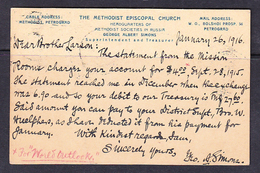 THE METHODIST EPISCOPAL CHURCH
CABLE ADDRESS:
METHODIST
PETROGRAD
HEADQUARTERS OF
METHODIST SOCIETIES IN RUSSIA
GEORGE ALBERT SIMONS
Superintendent and Treasurer
MAIL ADDRESS:
W. O. BOLSHOI PROSP.
PETROGRAD
January 26, 1916.
Dear Brother Larson: The statement from the Mission
Rooms charges your account for Sept. 28, 1915.
The statement reached me in December when the exchange
was 6.90 and so your debit to our Treasury is
Said amount you can pay to your District Supt., Bro. W.
as I have deducted it from his payment for
January. With kindest regards, I am,
Sincerely yours,
Geo. A. Simons.